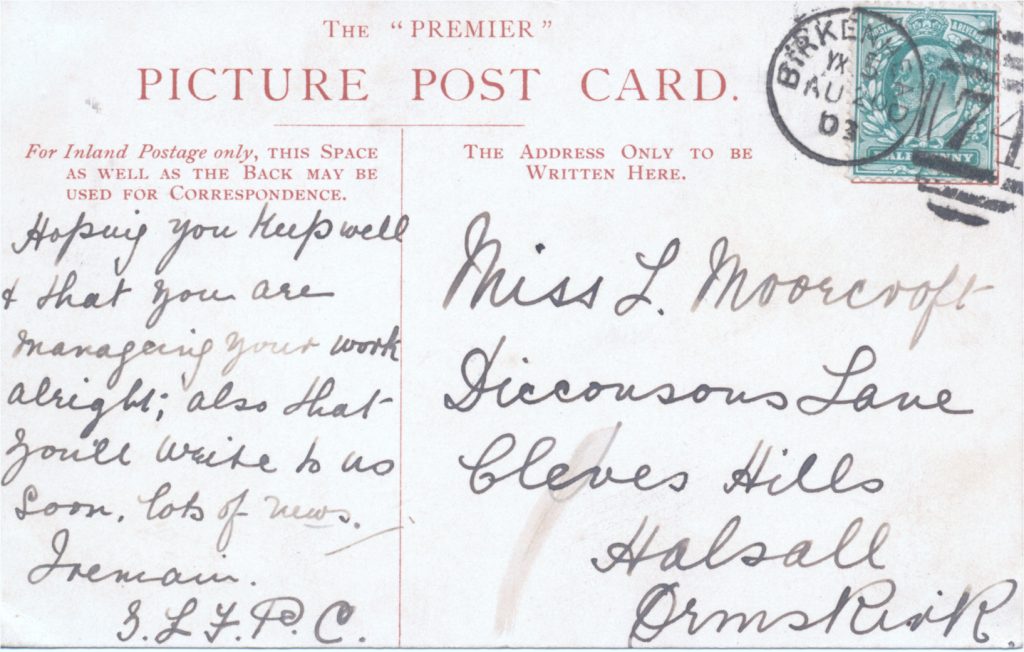 The "PREMIER"
PICTURE POST CARD.
For Inland Postage only, THIS SPACE
AS WELL AS THE BACK MAY BE
USED FOR CORRESPONDENCE.
Hoping you keep well
& that you are
manageing your work
alright; also that
you'll write to us
soon. lots of news.
Iremain.
THE ADDRESS ONLY TO BE
WRITTEN HERE.
Miss L. Moorcroft
Dicconsons Lane
Cleves Hills
Halsall
Ormskirk.
BIRKEN
AU
03
74